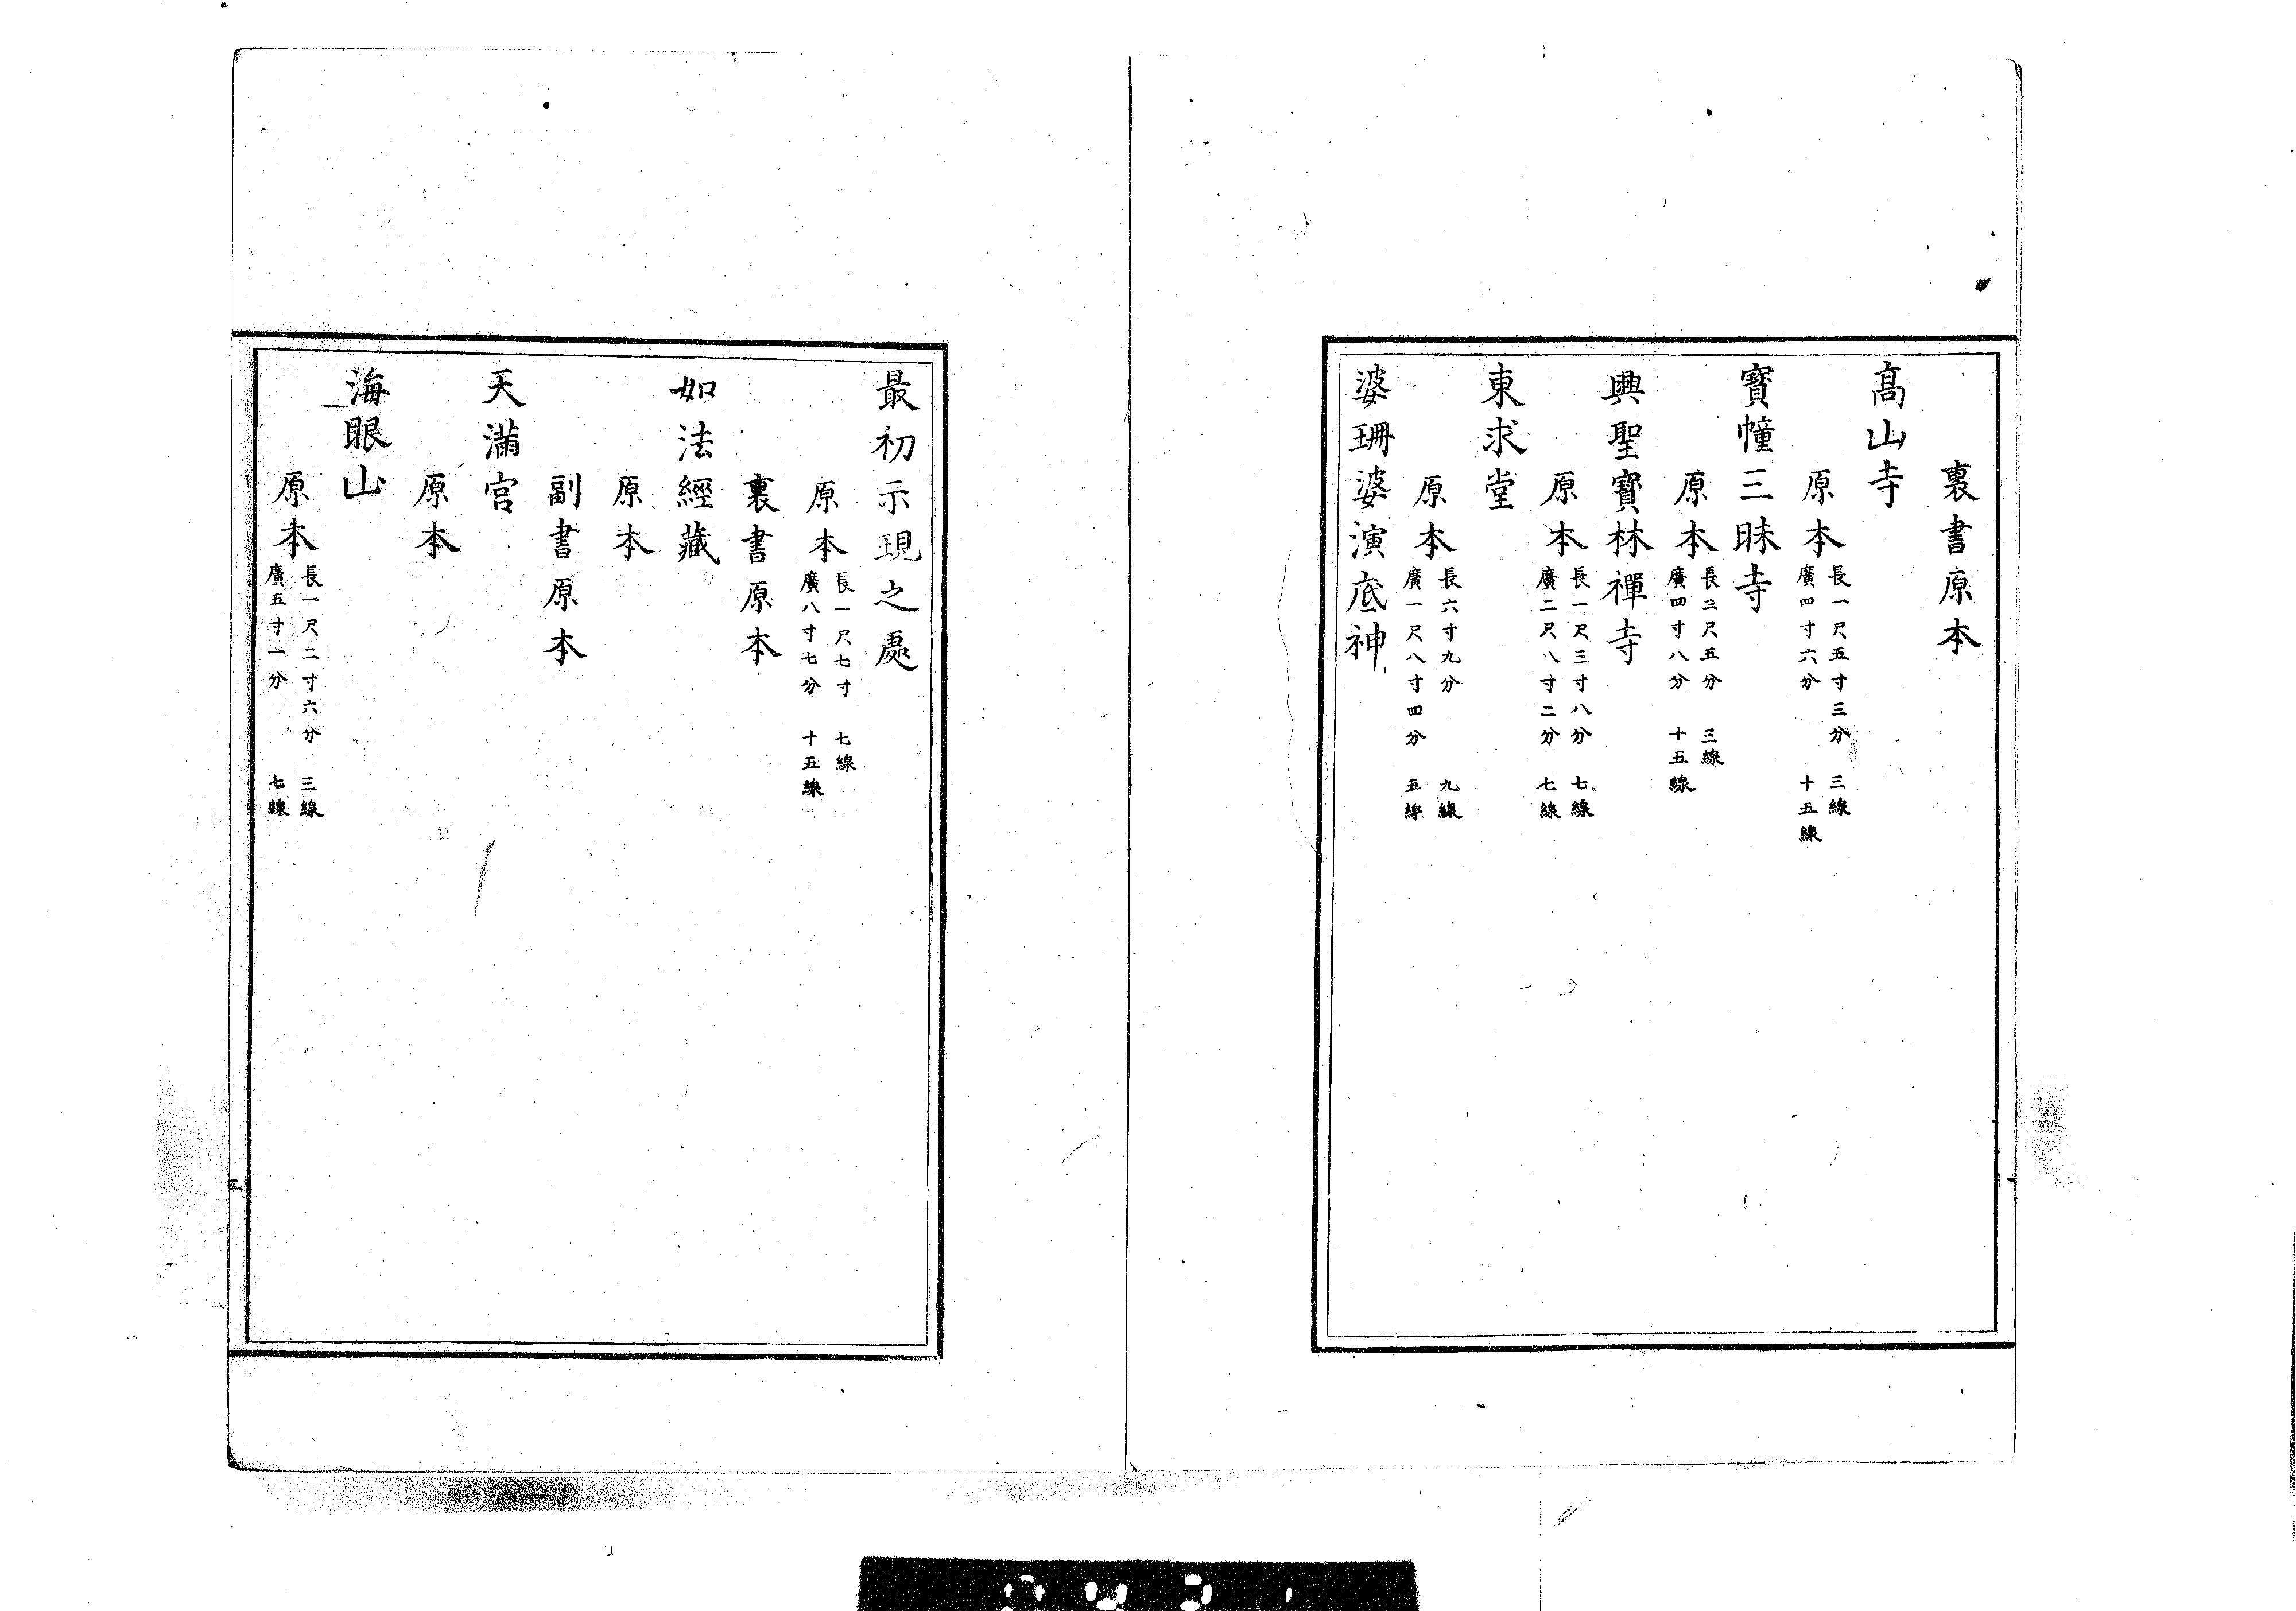 裏書原本
髙山寺
原本 長一尺五寸三分 三線
廣四寸六分 十五線
寳幢三昧寺
原本 長三尺五分 三線
廣四寸八分 十五線
興聖寳林禪寺
原本 長一尺三寸八分 七線
廣二尺八寸二分 七線
東求堂
原本 長六寸九分 九線
廣一尺八寸四分 五線
婆珊婆演底神
最初示現之處
原本 長一尺七寸 七線
廣八寸七分 十五線
裏書原本
如法經藏
原本
副書原本
天滿宮
原本
海眼山
原本 長一尺二寸六分 三線
廣五寸一分 七線